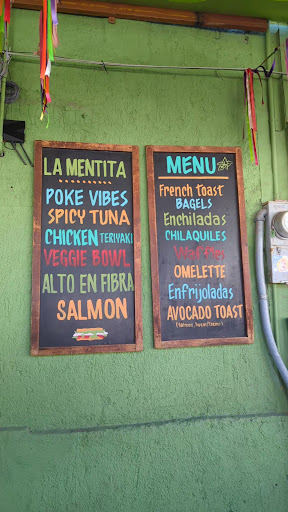 LA MENTITA
POKE VIBES
SPICY TUNA
CHICKEN TERIYAKI
VEGGIE BOWL
ALTO EN FIBRA
SALMON
MENU
French toast
BAGELS
Enchiladas
CHILAQUILES
Waffles
OMELETTE
Enfrijoladas
AVOCADO TOAST